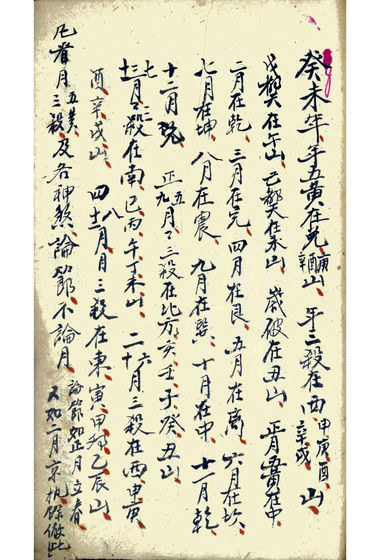 癸未年年五黄在兌庚酉辛山 年三殺在西申庚酉辛戌山
戊都天在午山己都天在未山 歲破在丑山 正月五黄在中
二月在乾 三月在兌 四月在艮 五月在离 六月在坎
七月在坤 八月在震 九月在巽 十月在中 十一月乾
十二月兌 正五九月々三殺在北方亥壬子癸丑山
三七十一月々三殺在南巳丙午丁未山 二六十月三殺在西申庚
酉辛戌山 四八十二月月三殺在東寅甲卯乙辰山
凡看月五黄三殺及各神煞論節不論月 論節如正月立春 又如二月京执餘倣此